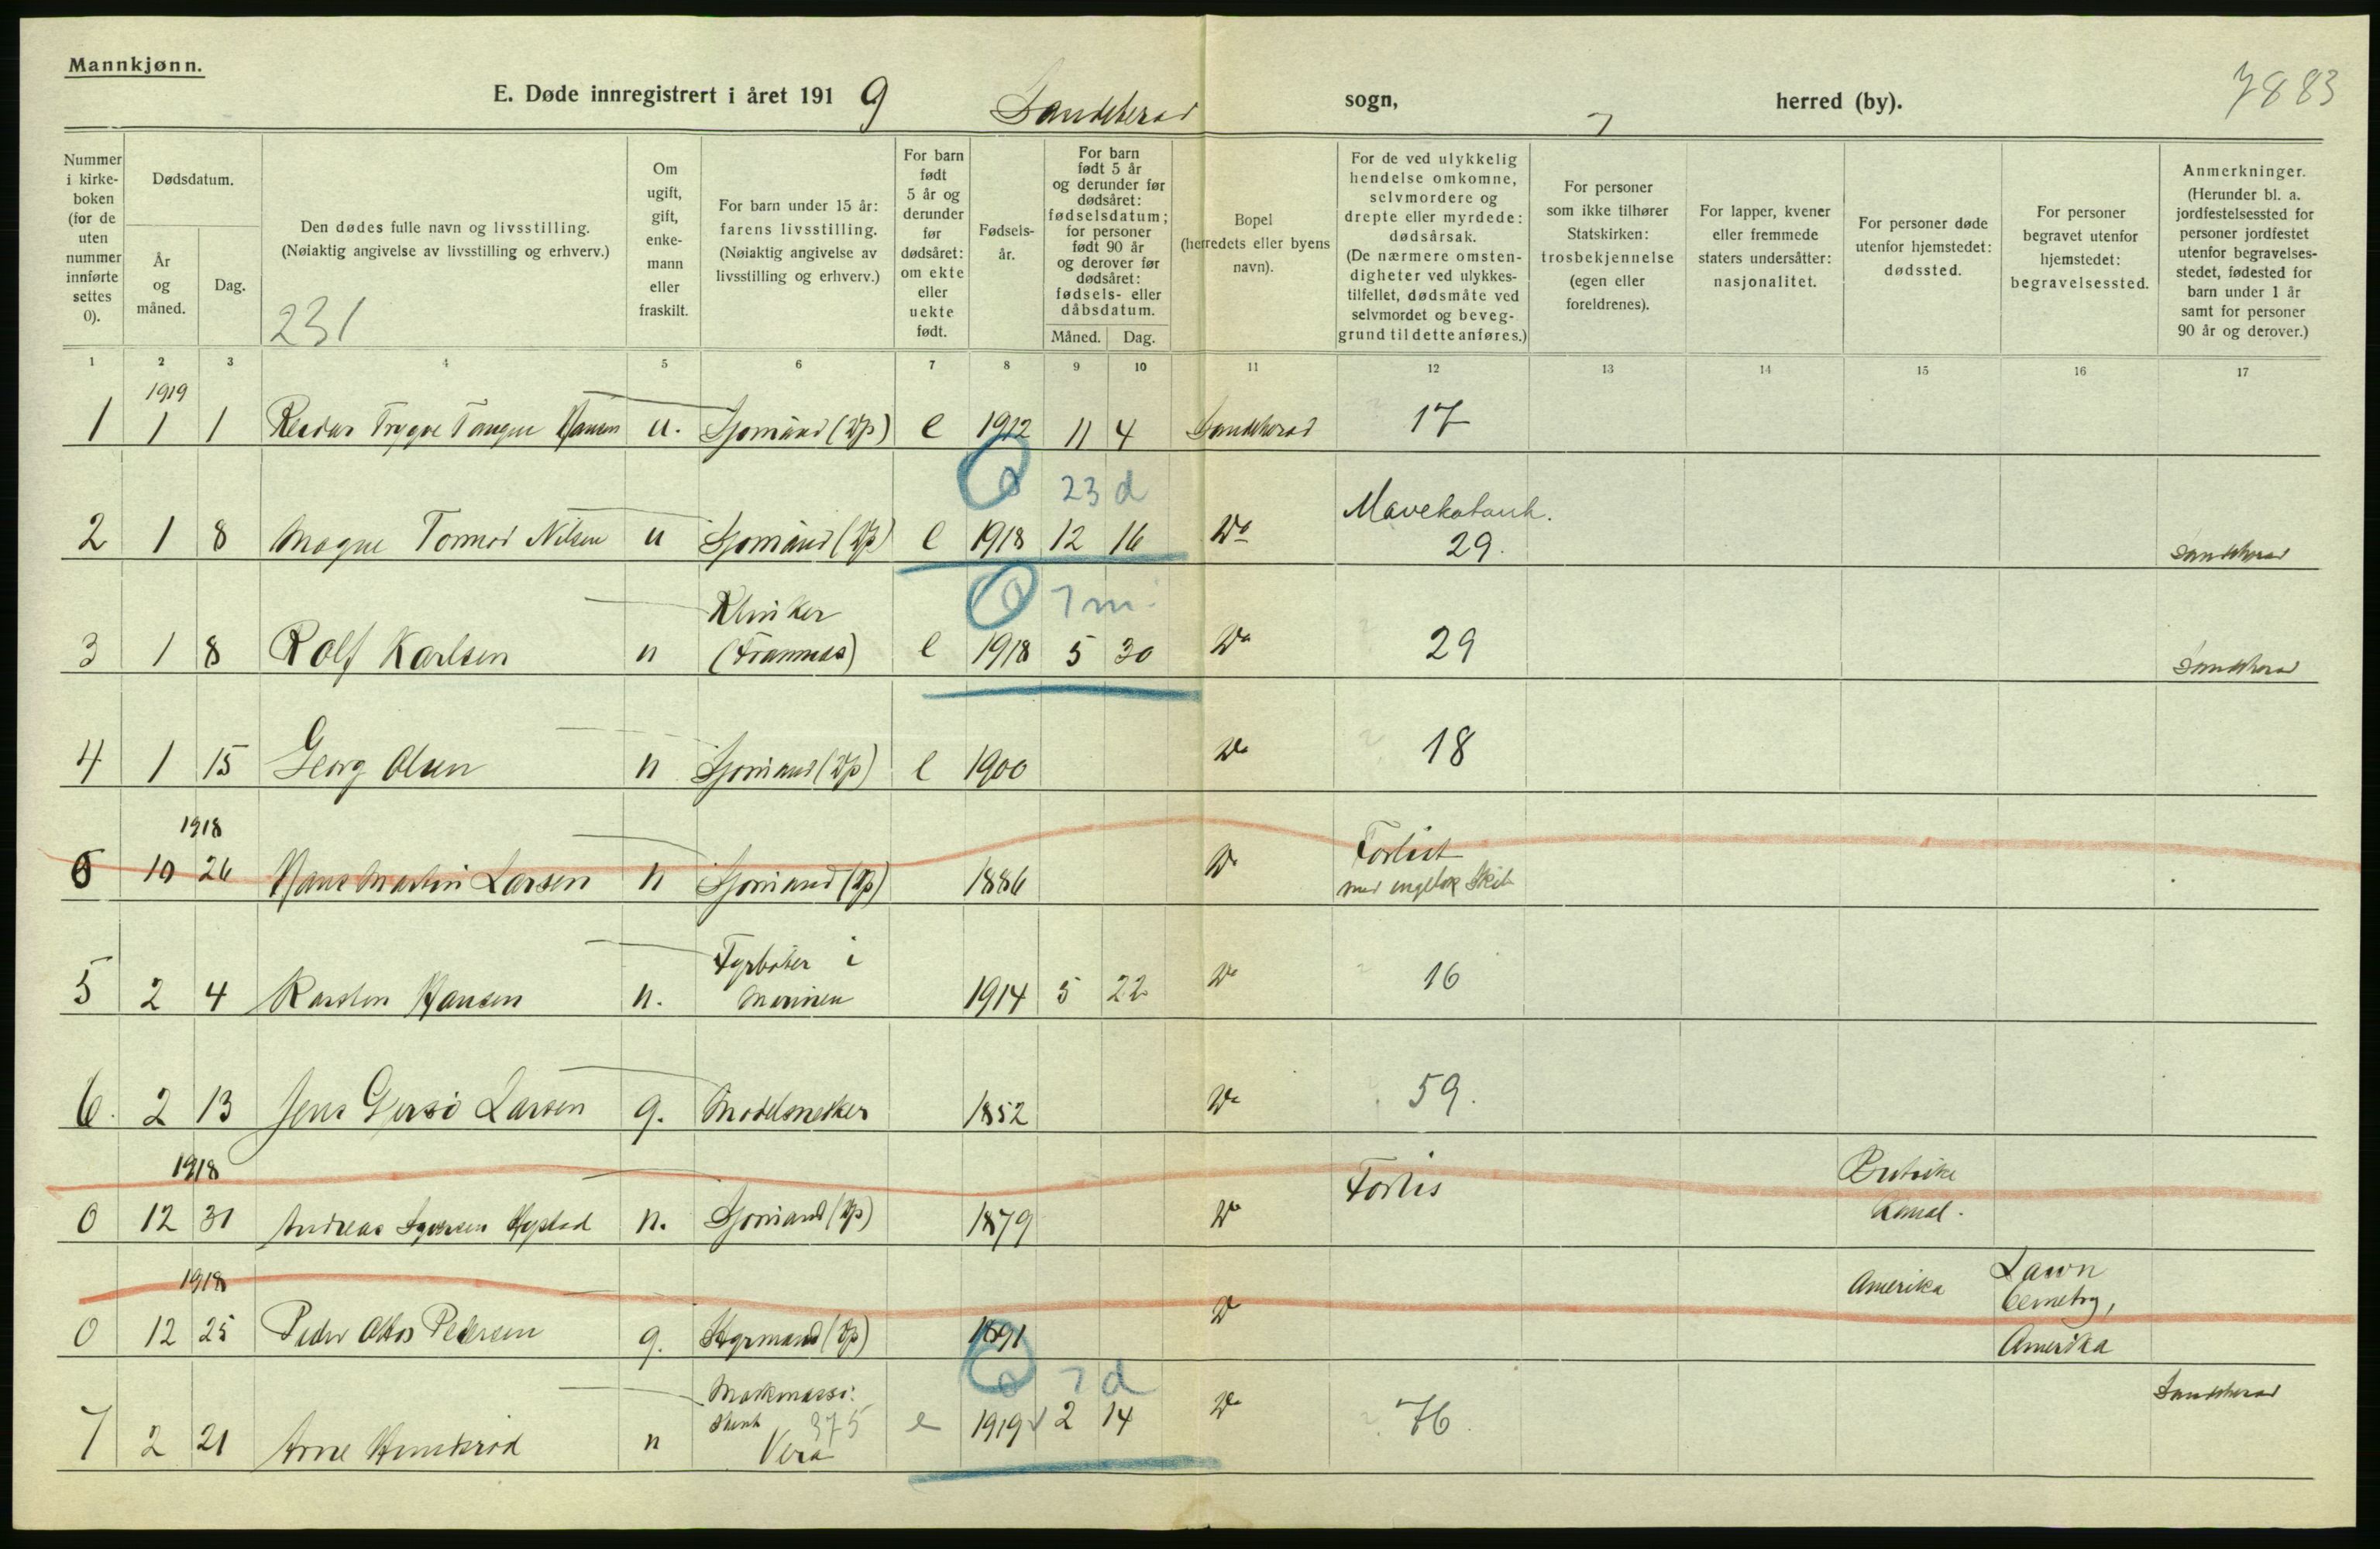 Mannkjønn.
E. Døde innregistrert i året 1919 Sandeherad sogn, herred (by).
7883
Nummer i kirke-boken (for de uten nummer innførte settes 0).
Dødsdatum.
År og måned.
Dag.
Den dødes fulle navn og livsstilling.
(Nøiaktig angivelse av livsstilling og erhverv.)
231
Om ugift, gift, enke-mann eller fraskilt.
For barn under 15 år: farens livsstilling.
(Nøiaktig angivelse av livsstilling og erhverv.)
For barn født 5 år og derunder før dødsåret: om ekte eller uekte født.
Fødsels-år.
For barn født 5 år og derunder før dødsåret: fødselsdatum; for personer født 90 år og derover før dødsåret: fødsels- eller dåbsdatum.
Måned.
Dag.
Bopel (herredets eller byens navn).
For de ved ulykkelig hendelse omkomne, selvmordere og drepte eller myrdede: dødsårsak.
(De nærmere omsten-digheter ved ulykkes-tilfellet, dødsmåte ved selvmordet og beveg-grund til dette anføres.)
For personer som ikke tilhører Statskirken: trosbekjennelse (egen eller foreldrenes).
For lapper, kvener eller fremmede staters undersåtter: nasjonalitet.
For personer døde utenfor hjemstedet: dødssted.
For personer begravet utenfor hjemstedet: begravelsessted.
Anmerkninger.
(Herunder bl. a. jordfestelsessted for personer jordfestet utenfor begravelses-stedet, fødested for barn under 1 år samt for personer 90 år og derover.)
1 2 3 4 5 6 7 8 9 10 11 12 13 14 15 16 17
1919
1 1 1 Reidar Trygve Tangen Hansen u. Sjømand (Dp) e 1912 11 4 Sandeherad 17
23 d
Mavekatarrh.
2 1 8 Magne Tormod Nilsen u Sjømand (Dp) e 1918 12 16 Do 29. Sandeherad
7 m
Klinker
3 1 8 Rolf Karlsen u (Framnæs) e 1918 5 30 Do 29 Sandeherad
4 1 15 Georg Olsen u Sjømand (Dp) e 1900 Do 18
1918
Forlist
0 10 26 Hans Martin Larsen u Sjømand (Dp) 1886 Do med engelsk Skib
Fyrbøter i
5 2 4 Karsten Hansen u. Marinen 1914 5 22 Do 16
6. 2 13 Jens Gjersø Larsen g. Modelsnekker 1852 Do 59.
1918
Forlis
0 12 31 Andreas Syversen u. Sjømand (Dp) 1879 Do Kanal.
1918
Amerika Lawn
Cemetry,
0 12 25 Peder Pedersen g. Styrmand (Dp) 1891 Do Amerika
7 d
375
7 2 21 Arne u Vera e 1919 2 14 Do 76. Sandeherad